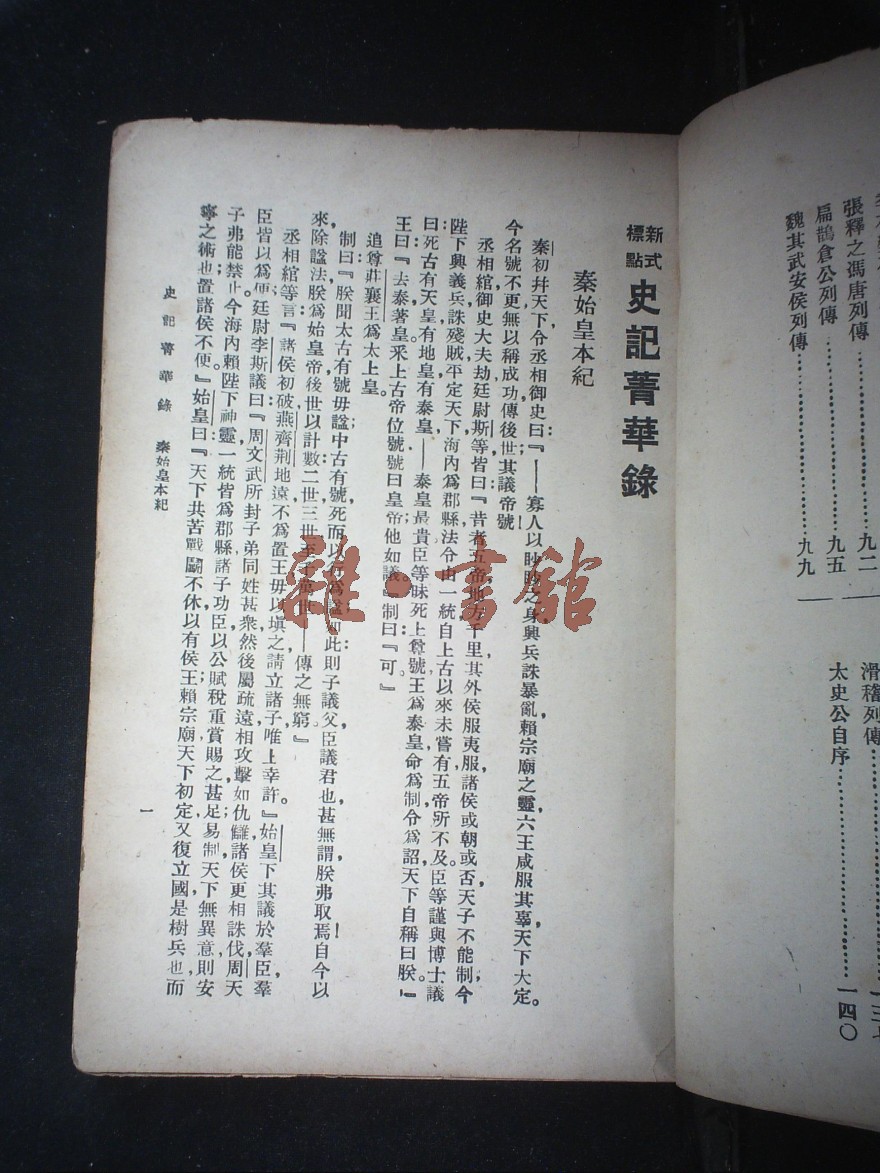 張釋之馮唐列傳……九二
扁鵲倉公列傳……九五
魏其武安侯列傳……九九
滑稽列傳……
太史公自序……一四〇
新式標點 史記菁華錄
秦始皇本紀
秦初幷天下令丞相御史曰,『——寡人以眇眇之身興兵誅暴亂賴宗廟之靈六王咸服其辜,天下大定。
今名號不更無以稱成功傳後世其議帝號!
丞相綰御史大夫劫廷尉斯等皆曰,『昔者五帝地方千里其外侯服夷服諸侯或朝或否,天子不能制;今
陛下興義兵誅殘賊,平定天下,海內爲郡縣法令由一統自上古以來未嘗有五帝所不及。臣等謹與博士議
曰:死古有天皇有地皇有泰皇——泰皇最貴臣等昧死上尊號王爲泰皇命爲制令爲詔天下自稱曰朕。』
王曰:『去泰著皇采上古帝位號號曰皇帝,他如議。』制曰:『可。』
追尊莊襄王爲太上皇。
制曰:『朕聞太古有號毋諡;中古有號死而以行爲諡如此則子議父臣議君也,甚無謂,朕弗取焉!自今以
來,除諡法朕爲始皇帝後世以計數二世三世至于萬世——傳之無窮。』
丞相綰等言:『諸侯初破,燕齊荆地遠,不爲置王毋以塡之請立諸子唯上幸許。』始皇下其議於羣臣,羣
臣皆以爲便,廷尉李斯議曰:『周文武所封子弟同姓甚衆然後屬疏遠相攻擊如仇讎諸侯更相誅伐,周天
子弗能禁止。今海內賴陛下神靈一統皆爲郡縣,諸子功臣以公賦稅重賞賜之甚足易制,天下無異意則安
寧之術也置諸侯不便』始皇曰:『天下共苦戰鬭不休以有侯王賴宗廟天下初定又復立國是樹兵也,而
史記菁華錄 秦始皇本紀
一
雜·書館